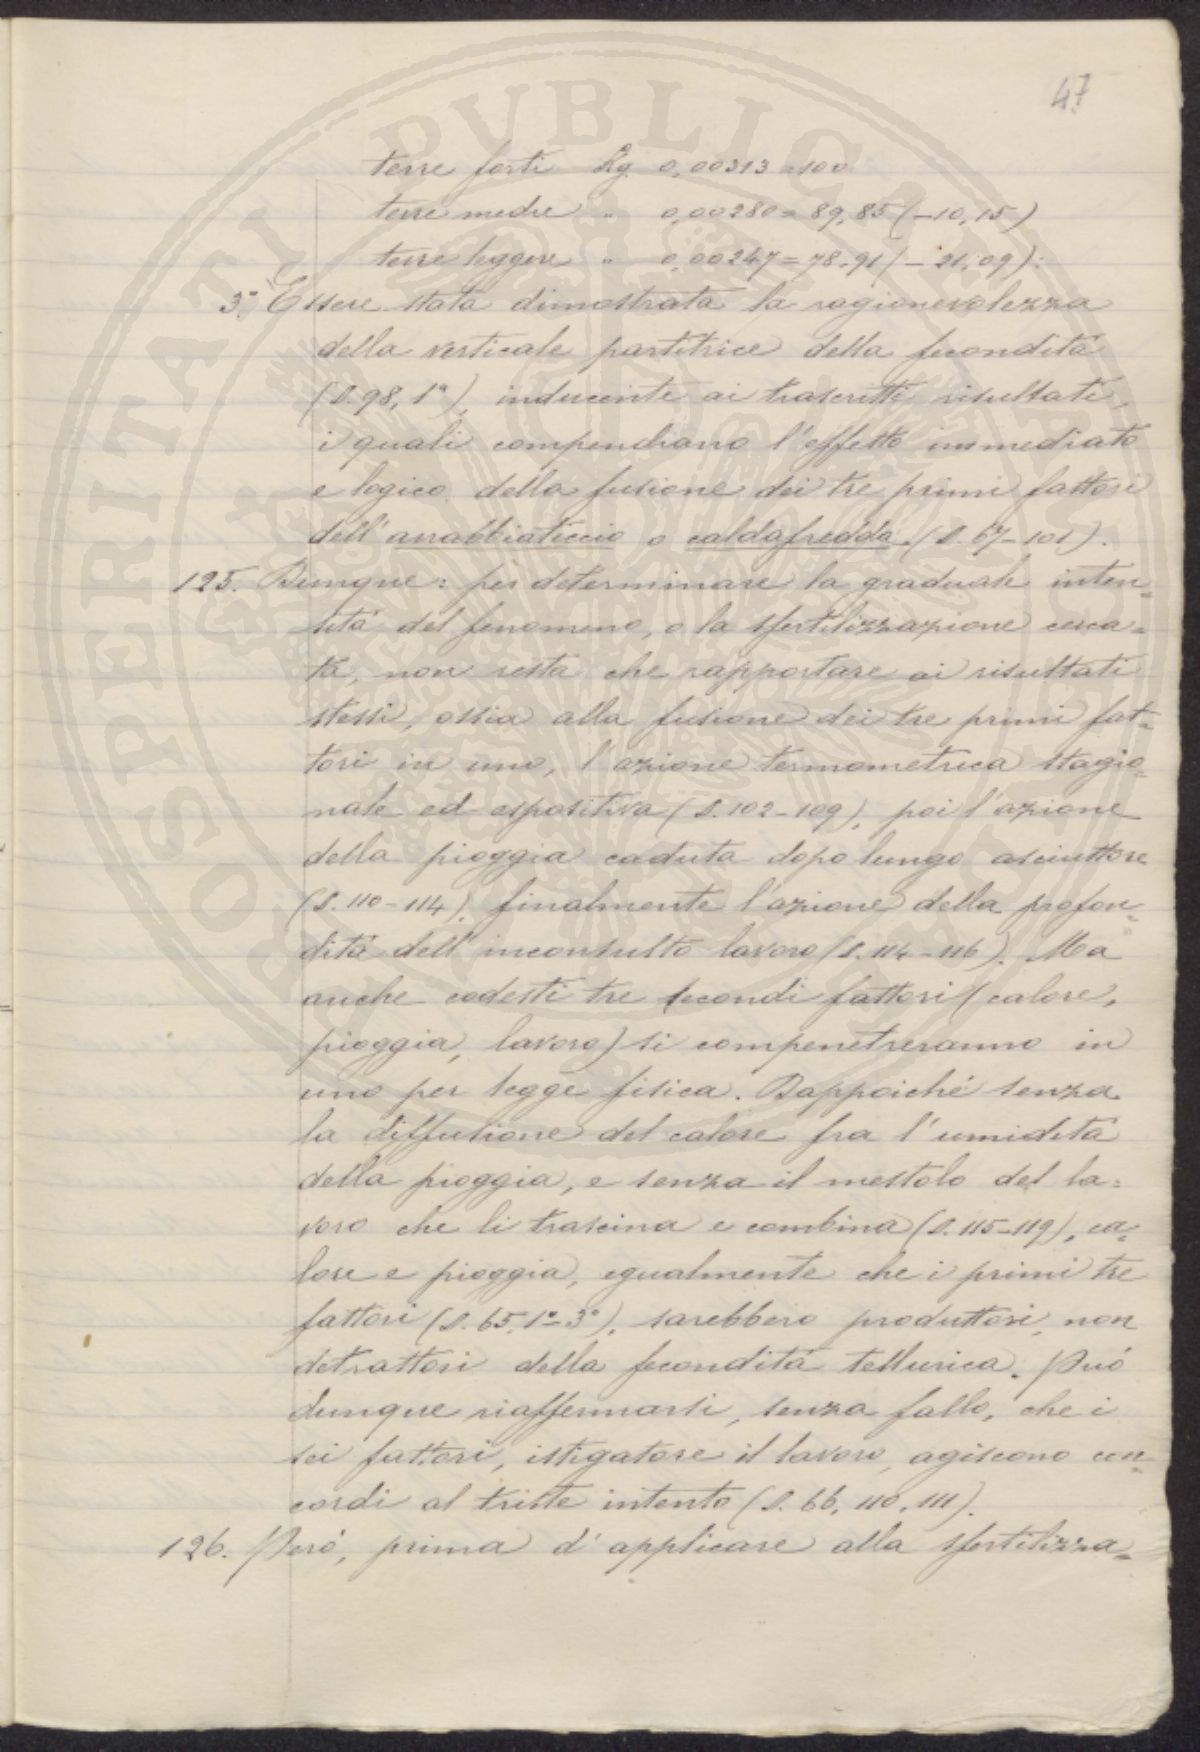 47
terre forti Kg. 0,00313 = 100
terre medie " 0,00280 = 89,85 (-10,15)
terre leggere " 0,00247 = 78.91 (- 21,09):
3.° Essere stata dimostrata la ragionevolezza
della verticale partitrice della fecondità
(§. 98, 1°), inducente ai trascritti risultati,
i quali compendiano l'effetto immediato
e logico della fusione dei tre primi fattori
dell'arrabbiaticcio o caldafredda (§. 67-101).
125. Dunque: per determinare la graduale inten=
sità del fenomeno, o la sfertilizzazione cerca=
ta, non resta che rapportare ai risultati
stessi, ossia alla fusione dei tre primi fat=
tori in uno, l'azione termometrica stagio=
nale ed espositiva (§. 102-109), poi l'azione
della pioggia caduta dopo lungo asciuttore
(§. 110-114), finalmente l'azione della profon=
dità dell'inconsulto lavoro (§. 114-116). Ma
anche codesti tre secondi fattori (calore,
pioggia, lavoro) si compenetreranno in
uno per legge fisica. Dappoiché senza
la diffusione del calore fra l'umidità
della pioggia, e senza il mestolo del la=
voro che li trascina e combina (§. 115-119), ca=
lore e pioggia, egualmente che i primi tre
fattori (§. 65, 1°-3°), sarebbero produttori, non
detrattori della fecondità tellurica. Può
dunque riaffermarsi, senza fallo, che i
sei fattori, istigatore il lavoro, agiscono con=
cordi al triste intento (§. 66, 110, 111).
126. Però, prima d'applicare alla sfertilizza=
PUBLICAE
PROSPERITATI